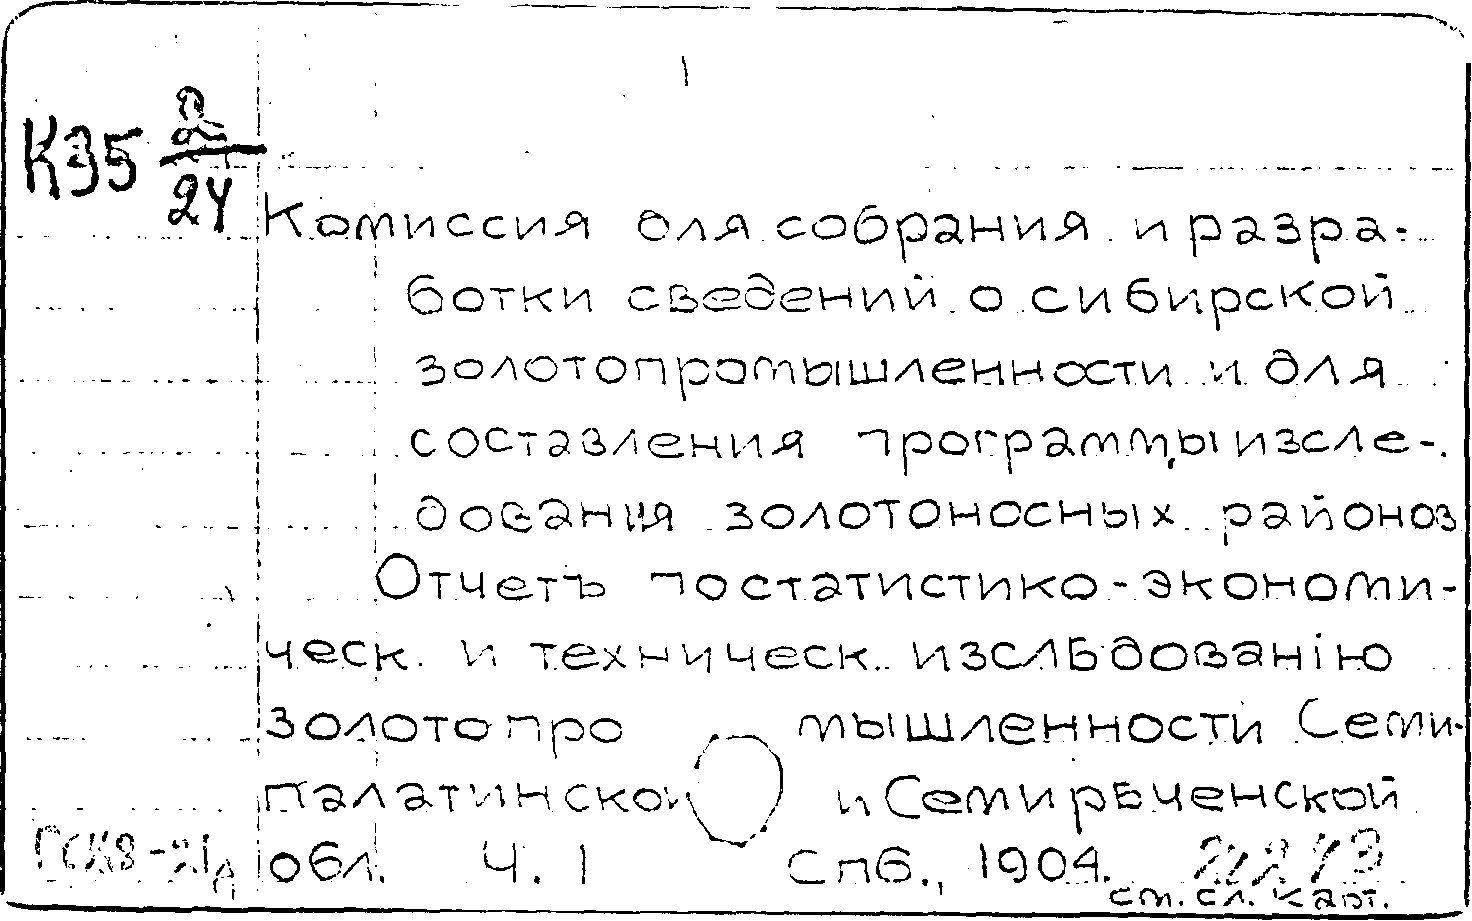 К35 2/24
Комиссия для собрания и разра-
ботки сведений о сибирской
золотопромышленности и для
составления программы изсле-
дования золотоносных районов
Отчетъ по статистико-экономи-
ческ. и техническ. изслѣдованію
золотопромышленности Семи-
палатинской и Семирѣченской
обл. Ч. 1 Спб., 1904.
см. сл. карт.